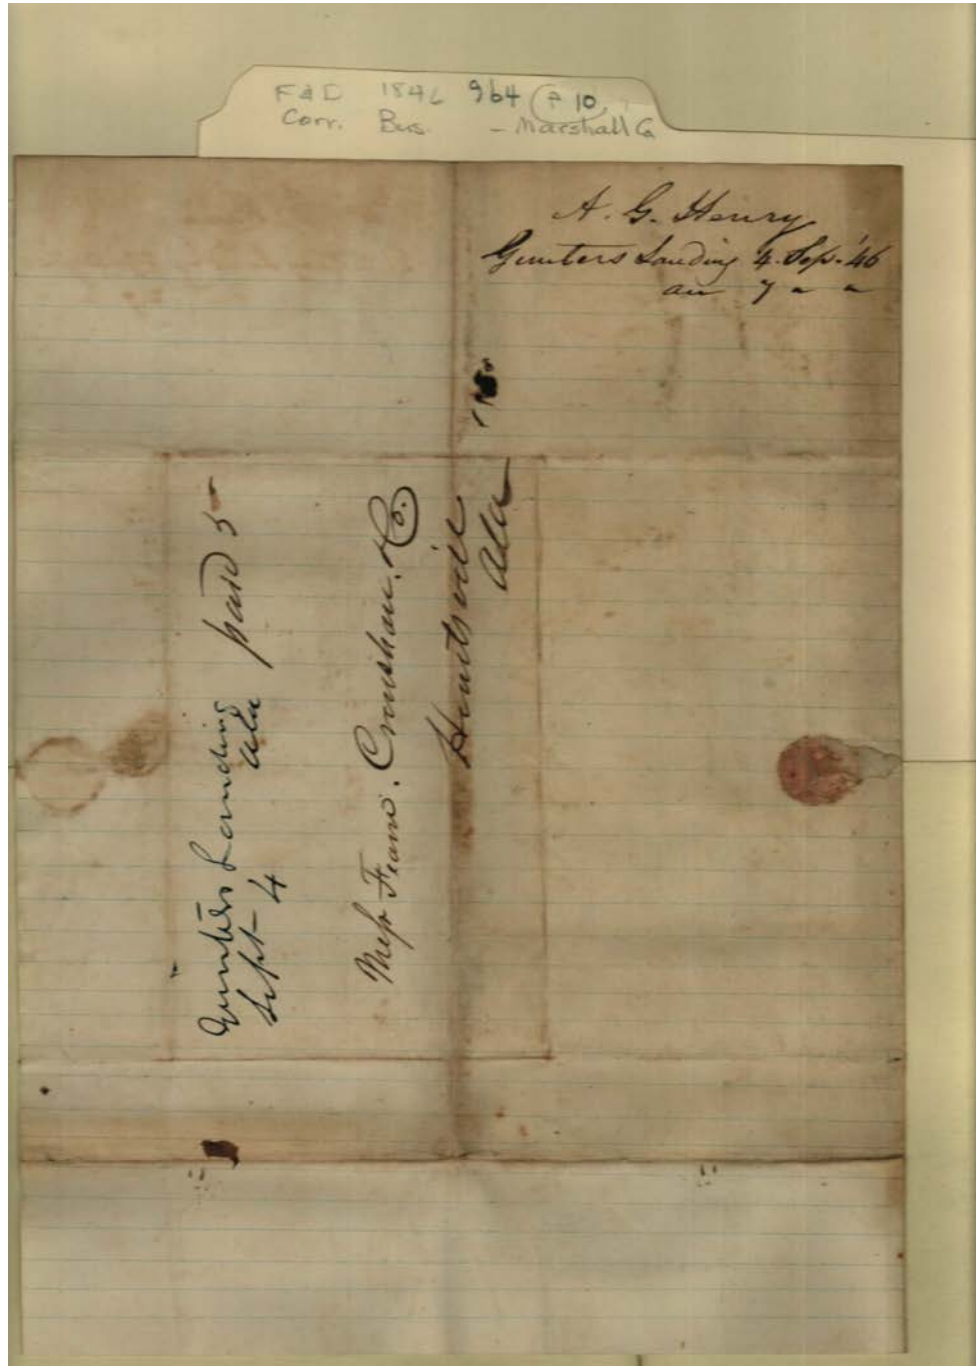 F & D 1846 964 P 10
Corr. Bus. - Marshall Co
A. G. Henry
Gunters Landing 4. Sep. '46
an 7 " "
Gunters Landing
Ala
Sept- 4
paid 5
Mess Fearn. Crenshaw. & Co.
Huntsvill
Ala